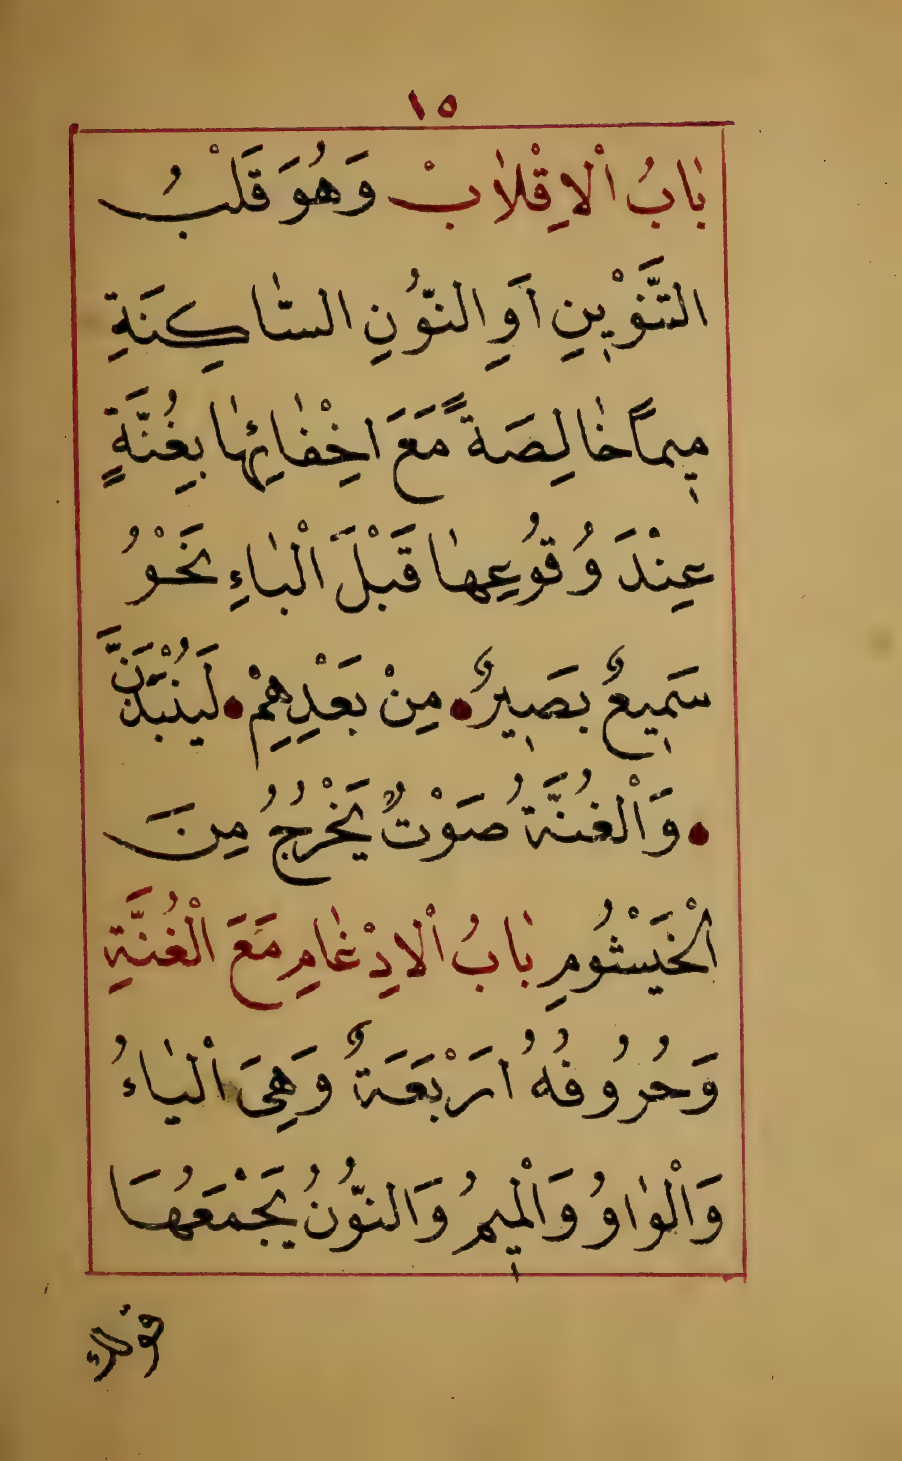 ١٥
بَابُ الْاِقْلَابْ وَهُوَ قَلْبُ
التَّنْوِينِ اَوِ النُّونِ السَّاكِنَةِ
مِيمًا خَالِصَةً مَعَ اِخْفَائِهَا بِغُنَّةٍ
عِنْدَ وُقُوعِهَا قَبْلَ الْبَاءِ نَحْوُ
سَمِيعٌ بَصِيرٌ • مِنْ بَعْدِهِمْ • لَيُنْبَذَنَّ
• وَالْغُنَّةُ صَوْتٌ يَخْرُجُ مِنَ
الْخَيْشُومِ بَابُ الْاِدْغَامِ مَعَ الْغُنَّةِ
وَحُرُوفُهُ اَرْبَعَةٌ وَهِىَ الْيَاءُ
وَالْوَاوُ وَالْمِيمُ وَالنُّونُ يَجْمَعُهَا
قولك